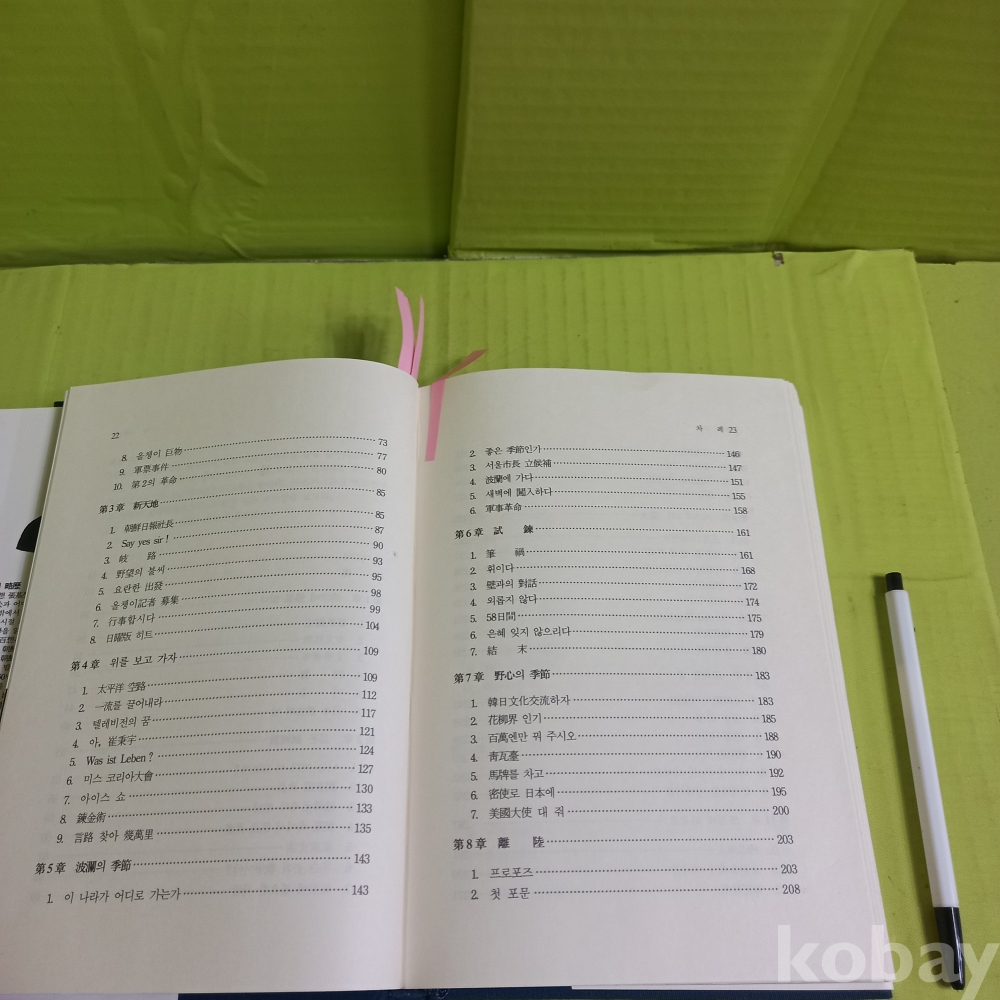 22
8. 올챙이 巨物 73
9. 軍票事件 77
10. 第2의 革命 80
第3章 新天地 85
1. 朝鮮日報社長 85
2. Say yes sir! 87
3. 岐 路 90
4. 野望의 불씨 93
5. 요란한 出發 95
6. 올챙이記者 募集 98
7. 行事합시다 99
8. 日曜版 히트 104
第4章 위를 보고 가자 109
1. 太平洋 空路 109
2. 一流를 끌어내라 112
3. 텔레비전의 꿈 117
4. 아, 崔秉宇 121
5. Was ist Leben? 124
6. 미스 코리아大會 127
7. 아이스 쇼 130
8. 鍊金術 133
9. 言路 찾아 幾萬里 135
第5章 波瀾의 季節 143
1. 이 나라가 어디로 가는가 143
차 례 23
2. 좋은 季節인가 146
3. 서울市長 立候補 147
4. 波蘭에 가다 151
5. 새벽에 闖入하다 155
6. 軍事革命 158
第6章 試 鍊 161
1. 筆 禍 161
2. 휘이다 168
3. 壁과의 對話 172
4. 외롭지 않다 174
5. 58日間 175
6. 은혜 잊지 않으리다 179
7. 結 末 180
第7章 野心의 季節 183
1. 韓日文化交流하자 183
2. 花柳界 인기 185
3. 百萬엔만 꿔 주시오 188
4. 靑瓦臺 190
5. 馬牌를 차고 192
6. 密使로 日本에 195
7. 美國大使 대 줘 200
第8章 離 陸 203
1. 프로포즈 203
2. 첫 포문 208
略歷
kobay